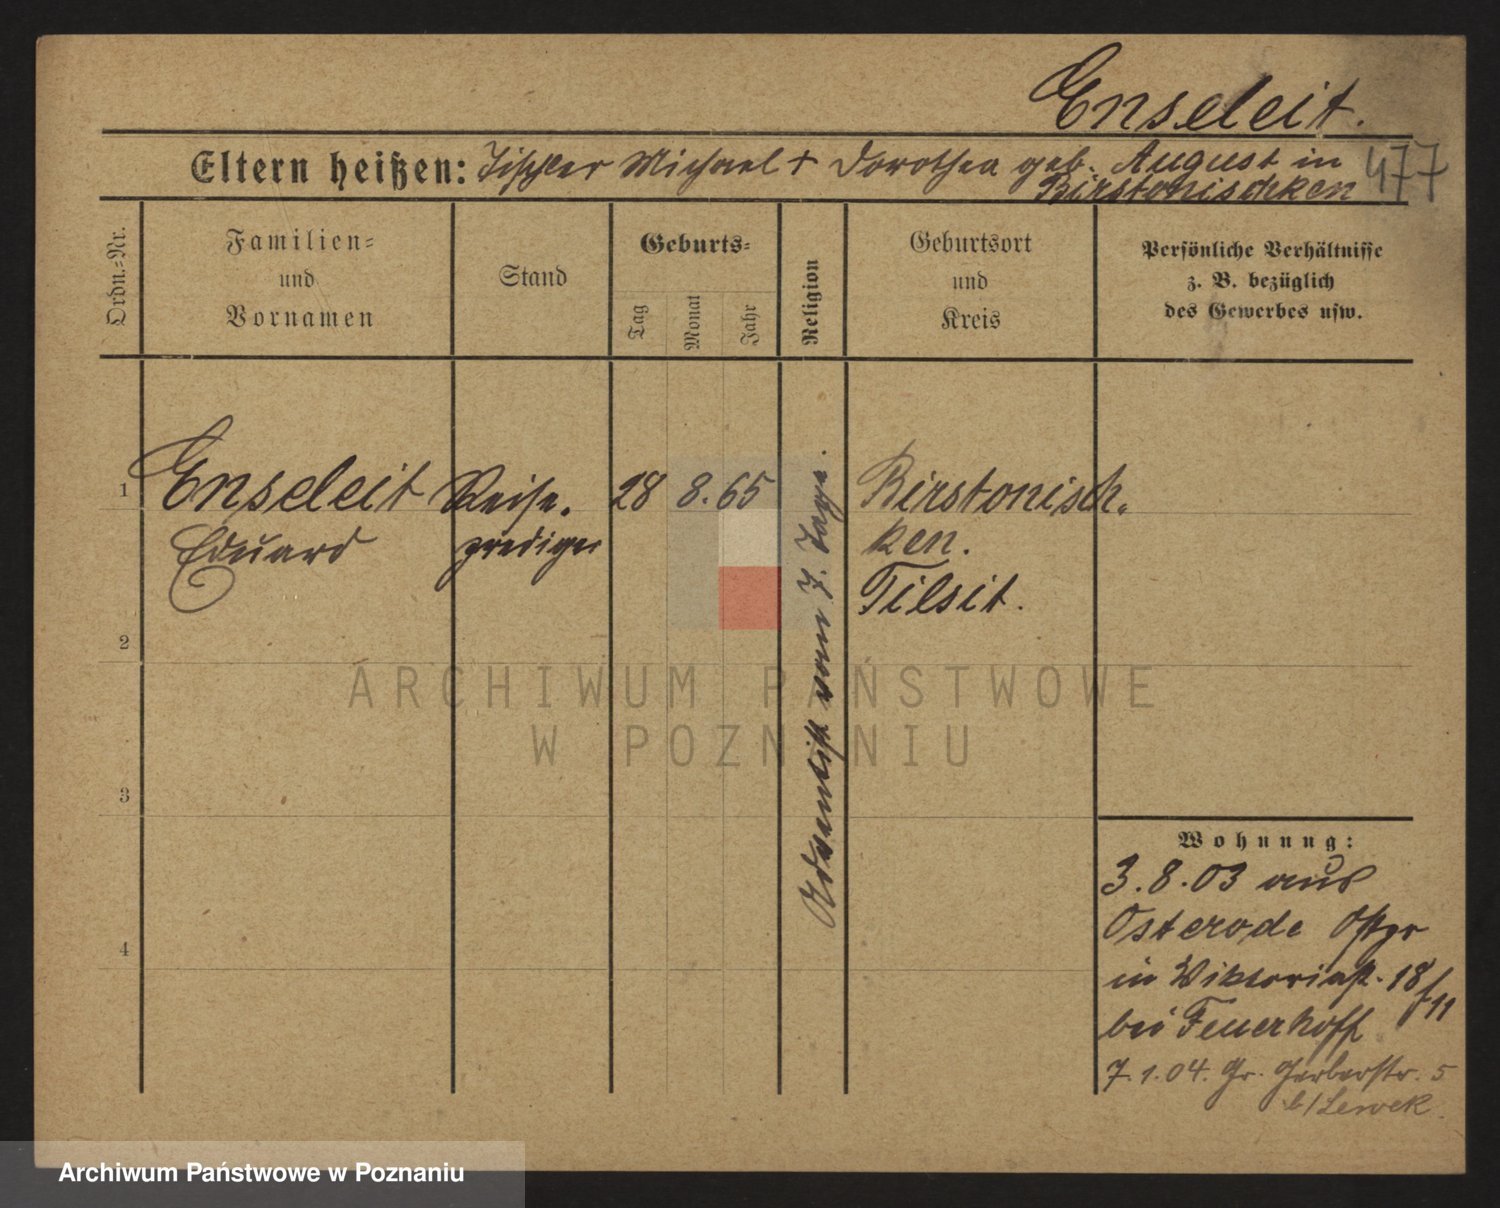 Enseleit.
Eltern heißen: Tischler Michael + Dorothea geb. August in
Birstonischken
477
Ordn.=Nr.
Familien=
und
Vornamen
Stand
Geburts=
Tag
Monat
Jahr
Religion
Geburtsort
und
Kreis
Persönliche Verhältnisse
z. B. bezüglich
des Gewerbes usw.
1
Enseleit
Eduard
Reise.
prediger
28 8. 65
Adventist vom 7. Tage.
Birstonisch.
ken.
Tilsit.
2
3
4
Wohnung:
3.8.03 aus
Osterode Ostpr
in Viktoriast. 18/11
bei Feuerhoff
7.1.04. Gr. Gerberstr. 5
b/Lewek.
ARCHIWUM PAŃSTWOWE
W POZNANIU
Archiwum Państwowe w Poznaniu